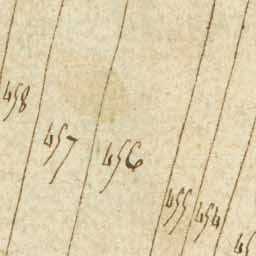 458
457
456
455
454